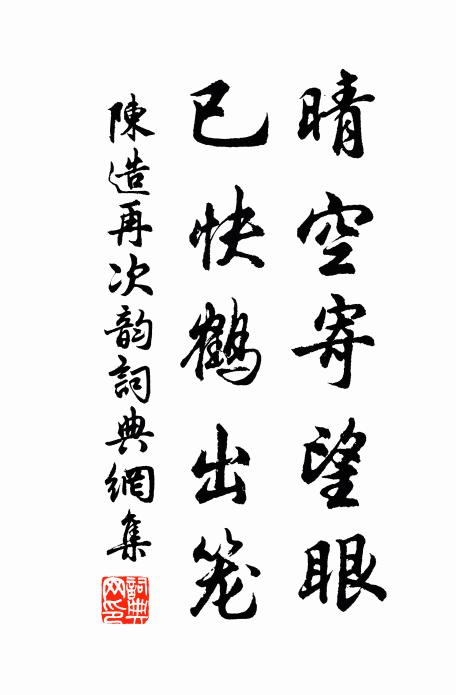 晴空寄望眼
已快鶴出笼
陳造再次韵詞典網集
詞典網印